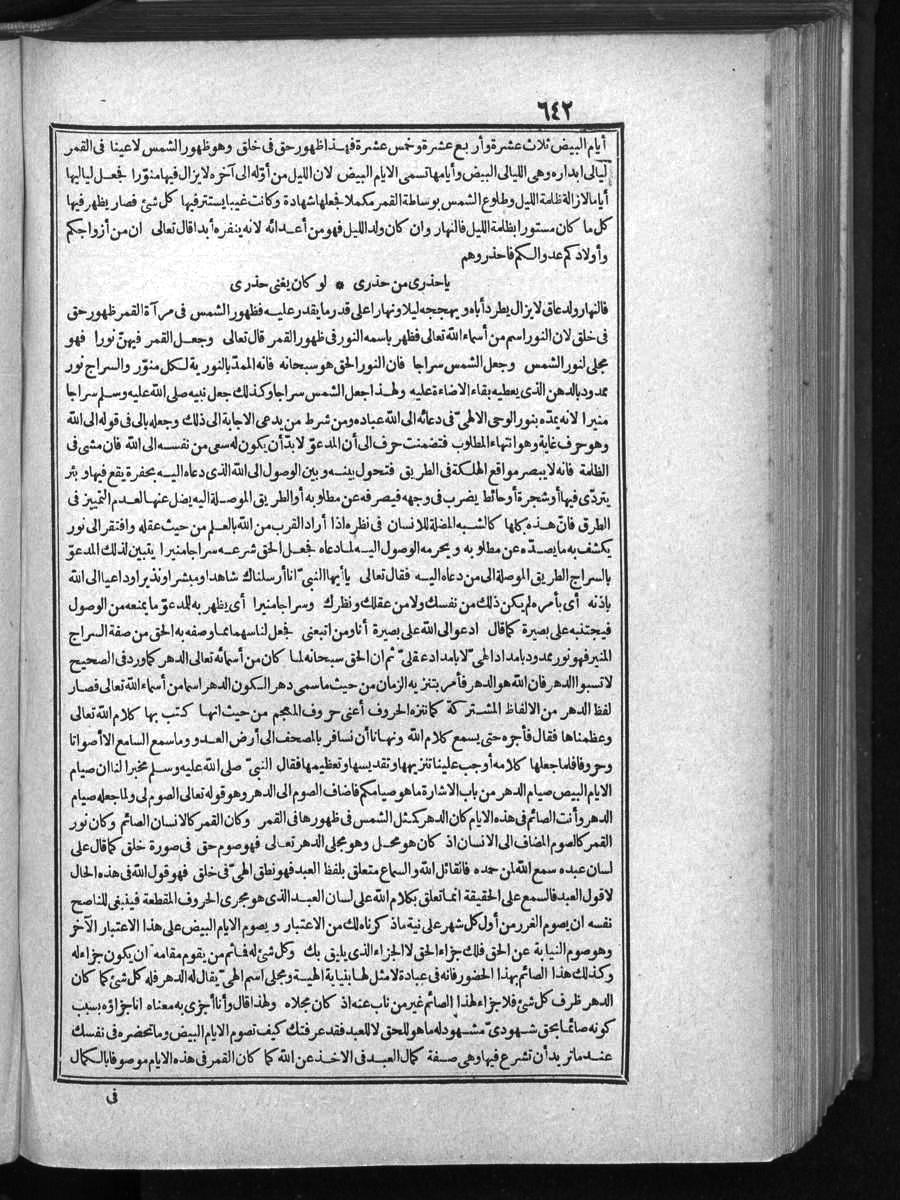 ٦٤٢
أيام البيض ثلاث عشرة وأربع عشرة وخمس عشرة فهذا ظهور حق فى خلق وهو ظهور الشمس لاعيننا فى القمر
ليالى ابداره وهى الليالى البيض وأيامها تسمى الايام البيض لان الليل من أوّله الى آخره لا يزال فيها منوّرا فجعل لياليها
أياما لازالة ظلمة الليل وطلوع الشمس بوساطة القمر مكملا فجعلها شهادة وكانت غيبا يستتر فيها كل شئ فصار يظهر فيها
كل ما كان مستورا بظلمة الليل فالنهار وان كان ولد الليل فهو من أعدائه لانه ينفره أبدا قال تعالى ان من أزواجكم
وأولادكم عدوا لكم فاحذروهم
ياحذرى من حذرى * لو كان يغنى حذرى
فالنهار ولد عاق لا يزال يطرد أباه ويهججه ليلا ونهارا على قدر ما يقدر عليه فظهور الشمس فى مرآة القمر ظهور حق
فى خلق لان النور اسم من أسماء الله تعالى فظهر باسمه النور فى ظهور القمر قال تعالى وجعل القمر فيهنّ نورا فهو
مجلى لنور الشمس وجعل الشمس سراجا فان النور الحق هو سبحانه فانه الممدّ بالنورية لكل منوّر والسراج نور
ممدود بالدهن الذى يعطيه بقاء الاضاءة عليه ولهذا جعل الشمس سراجا وكذلك جعل نبيه صلى الله عليه وسلم سراجا
منيرا لانه يمدّه بنور الوحى الالهىّ فى دعائه الى الله عباده ومن شرط من يدعى الاجابة الى ذلك وجعله بالى فى قوله الى الله
وهو حرف غاية وهو انتهاء المطلوب فتضمنت حرف الى أن المدعوّ لا بدّ أن يكون له سعى من نفسه الى الله فان مشى فى
الظلمة فانه لا يبصر مواقع الهلكة فى الطريق فتحول بينه وبين الوصول الى الله الذى دعاه اليه بحفرة يقع فيها وبئر
يتردّى فيها أو شجرة أو حائط يضرب فى وجهه فيصرفه عن مطلوبه أو الطريق الموصلة اليه يضل عنها لعدم التمييز فى
الطرق فانّ هذه كلها كالشبه المضلة للانسان فى نظره اذا أراد القرب من الله بالعلم من حيث عقله وافتقر الى نور
يكشف به ما يصدّه عن مطلوبه ويحرمه الوصول اليه لما دعاه فجعل الحق شرعه سراجا منيرا يتبين لذلك المدعوّ
بالسراج الطريق الموصلة الى من دعاه اليه فقال تعالى يا أيها النبىّ انا أرسلناك شاهدا ومبشرا ونذيرا وداعيا الى الله
باذنه أى بأمره لم يكن ذلك من نفسك ولا من عقلك ونظرك وسراجا منيرا أى يظهر به للمدعوّ ما يمنعه من الوصول
فيجتنبه على بصيرة كما قال ادعو الى الله على بصيرة أنا ومن اتبعنى فجعل لنا سهما مما وصفه به الحق من صفة السراج
المنير فهو نور ممدود بامداد الهىّ لا بامداد عقلىّ ثم ان الحق سبحانه لما كان من أسمائه تعالى الدهر كما ورد فى الصحيح
لا تسبوا الدهر فان الله هو الدهر فأمر بتنزيه الزمان من حيث ما سمى دهر الكون الدهر اسما من أسماء الله تعالى فصار
لفظ الدهر من الالفاظ المشتركة كما ننزه الحروف أعنى حروف المعجم من حيث انها كتب بها كلام الله تعالى
وعظمناها فقال فأجره حتى يسمع كلام الله ونهانا أن نسافر بالمصحف الى أرض العدو وما سمع السامع الا أصواتا
وحروفا فلما جعلها كلامه أوجب علينا تنزيهها وتقديسها وتعظيمها فقال النبىّ صلى الله عليه وسلم مخبرا لنا ان صيام
الايام البيض صيام الدهر من باب الاشارة ما هو صيامكم فاضاف الصوم الى الدهر وهو قوله تعالى الصوم لى ولما جعله صيام
الدهر وأنت الصائم فى هذه الايام كان الدهر كمثل الشمس فى ظهورها فى القمر وكان القمر كالانسان الصائم وكان نور
القمر كالصوم المضاف الى الانسان اذ كان هو محل وهو مجلى الدهر تعالى فهو صوم حق فى صورة خلق كما قال على
لسان عبده سمع الله لمن حمده فالقائل الله والسماع متعلق بلفظ العبد فهو نطق الهىّ فى خلق فهو قول الله فى هذه الحال
لا قول العبد فالسمع على الحقيقة انما تعلق بكلام الله على لسان العبد الذى هو مجرى الحروف المقطعة فينبغى للناصح
نفسه ان يصوم الغرر من أول كل شهر على نية ما ذكرناه لك من الاعتبار ويصوم الايام البيض على هذا الاعتبار الآخر
وهو صوم النيابة عن الحق فلك جزاء الحق لا الجزاء الذى يليق بك وكل شئ له فانم من يقوم مقامه ان يكون جزاءه له
وكذلك هذا الصائم بهذا الحضور فانه فى عبادة لا مثل لها بنيابة الهية ومجلى اسم الهىّ يقال له الدهر فله كل شئ كما كان
الدهر ظرف كل شئ فلا جزاء لهذا الصائم غير من ناب عنه اذ كان مجلاه ولهذا قال وأنا أجزى به معناه انا جزاؤه بسبب
كونه صائما بحق شهودىّ مشهود له ما هو للحق لا للعبد فقد عرفتك كيف تصوم الايام البيض وما تحضره فى نفسك
عندما تريد أن تشرع فيها وهى صفة كمال العبد فى الاخذ عن الله كما كان القمر فى هذه الايام موصوفا بالكمال
فى